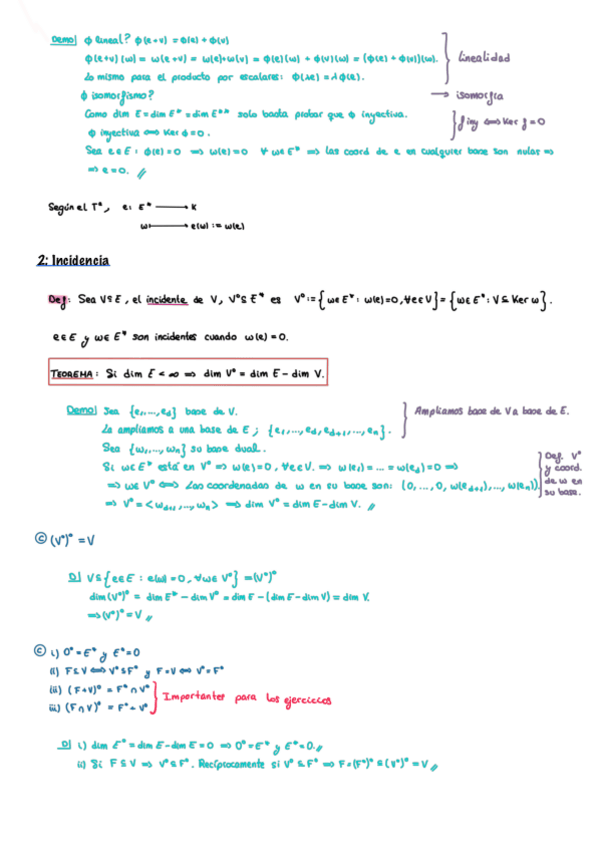 Demo| ϕ lineal? ϕ(e+v) = ϕ(e) + ϕ(v)
ϕ(e+v)(ω) = ω(e+v) = ω(e)+ω(v) = ϕ(e)(ω) + ϕ(v)(ω) = (ϕ(e) + ϕ(v))(ω).
Linealidad
Lo mismo para el producto por escalares: ϕ(λe) = λϕ(e).
ϕ isomorfismo?
→ isomorfía
Como dim E = dim E* = dim E** solo basta probar que ϕ inyectiva.
ϕ inyectiva ⟺ Ker ϕ = 0.
f iny ⟺ Ker f = 0
Sea e∈E: ϕ(e) = 0 ⟹ ω(e) = 0 ∀ω∈E* ⟹ las coord de e en cualquier base son nular ⟹
⟹ e = 0. //
Según el Tª, e: E* ⟶ K
ω ⟼ e(ω) := ω(e)
2: Incidencia
Def: Sea V⊆E, el incidente de V, V°⊆E* es V° := {ω∈E*: ω(e)=0, ∀e∈V} = {ω∈E*: V⊆Ker ω}.
e∈E y ω∈E* son incidentes cuando ω(e) = 0.
TEOREMA: Si dim E < ∞ ⟹ dim V° = dim E - dim V.
Demo| Sea {e₁,...,e_d} base de V.
Ampliamos base de V a base de E.
La ampliamos a una base de E; {e₁,...,e_d, e_{d+1},...,e_n}.
Sea {ω₁,...,ω_n} su base dual.
Si ω∈E* está en V° ⟹ ω(e) = 0, ∀e∈V. ⟹ ω(e₁) = ... = ω(e_d) = 0 ⟹
⟹ ω∈V° ⟺ Las coordenadas de ω en su base son: (0,...,0, ω(e_{d+1}),..., ω(e_n)).
Def. V°
y coord.
de ω en
su base.
⟹ V° = <ω_{d+1},..., ω_n> ⟹ dim V° = dim E - dim V. //
© (V°)° = V
D| V⊆{e∈E: e(ω) = 0, ∀ω∈V°} = (V°)°
dim(V°)° = dim E* - dim V° = dim E - (dim E - dim V) = dim V.
⟹ (V°)° = V //
© i) 0° = E* y E° = 0
ii) F⊆V ⟺ V°⊆F° y F=V ⟺ V°=F°
iii) (F+V)° = F° ∩ V°
iii) (F∩V)° = F° + V°
Importantes para los ejercicios
D| i) dim E° = dim E - dim E = 0 ⟹ 0° = E* y E° = 0. //
ii) Si F⊆V ⟹ V°⊆F°. Recíprocamente si V°⊆F° ⟹ F = (F°)° ⊆ (V°)° = V //